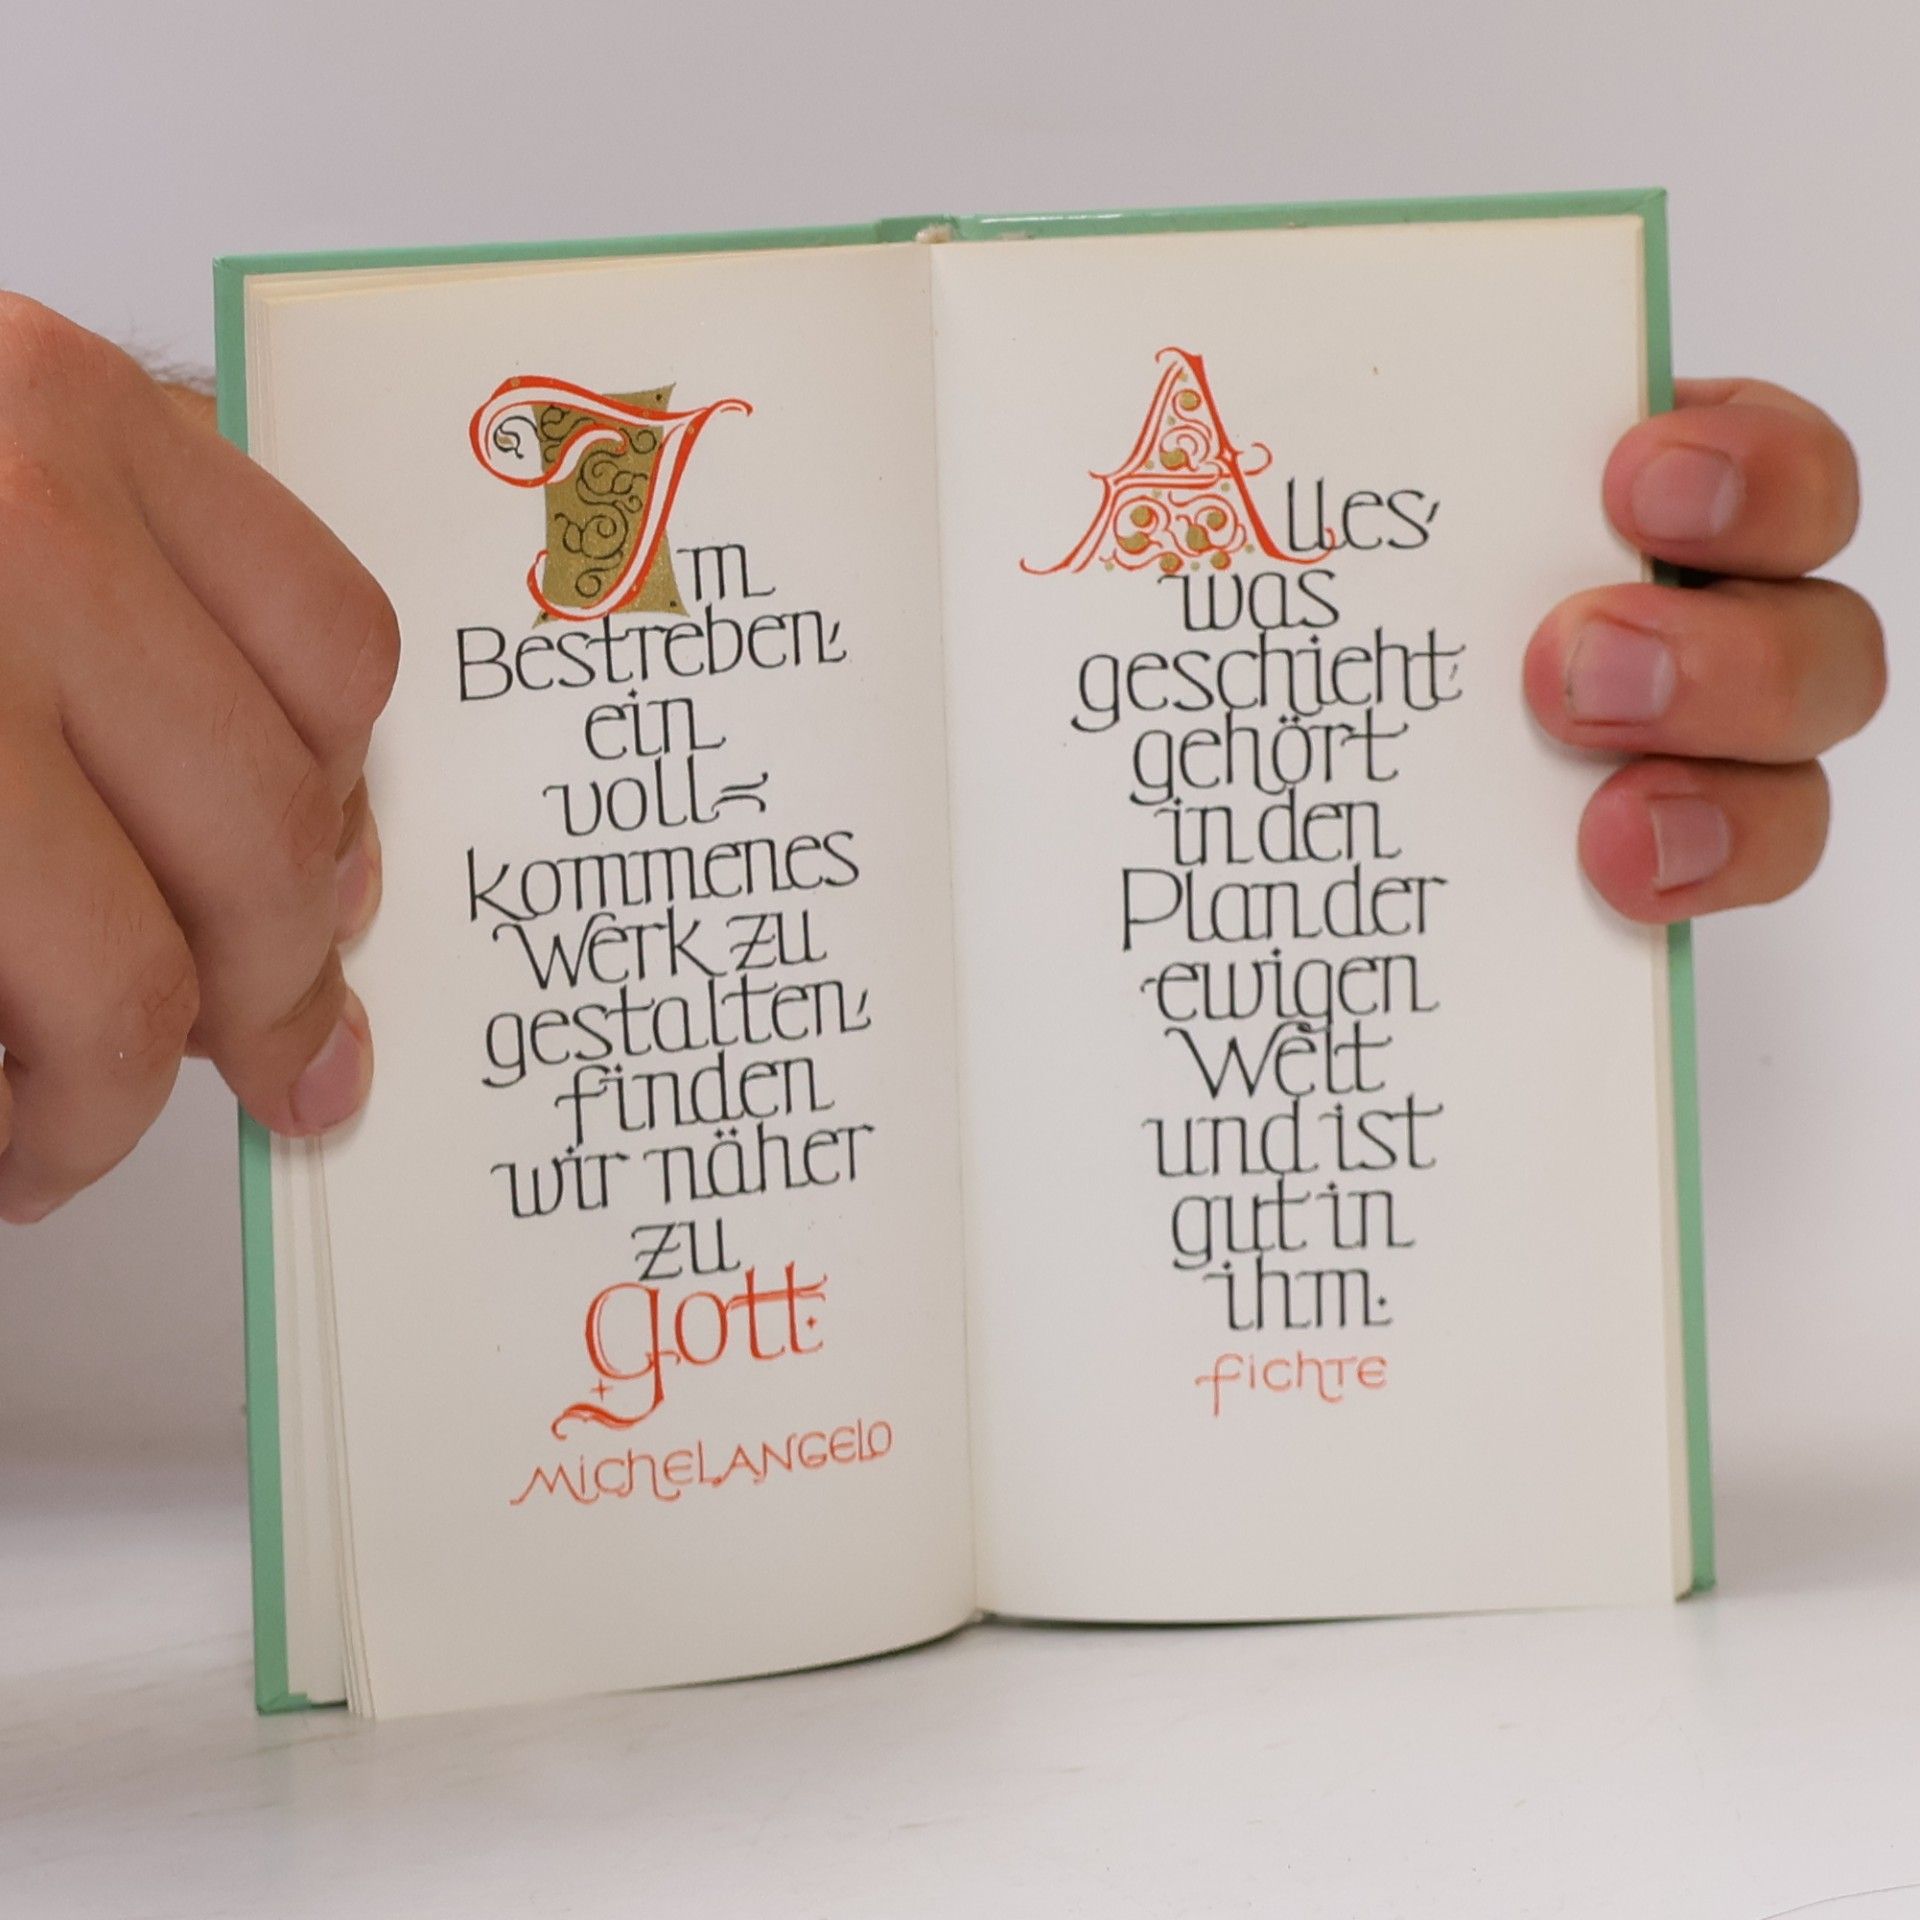 Im
Bestreben,
ein
voll=
kommenes
Werk zu
gestalten,
finden
wir näher
zu
Gott.
Michelangelo
Alles,
was
geschieht,
gehört
in den
Plan der
ewigen
Welt
und ist
gut in
ihm.
Fichte